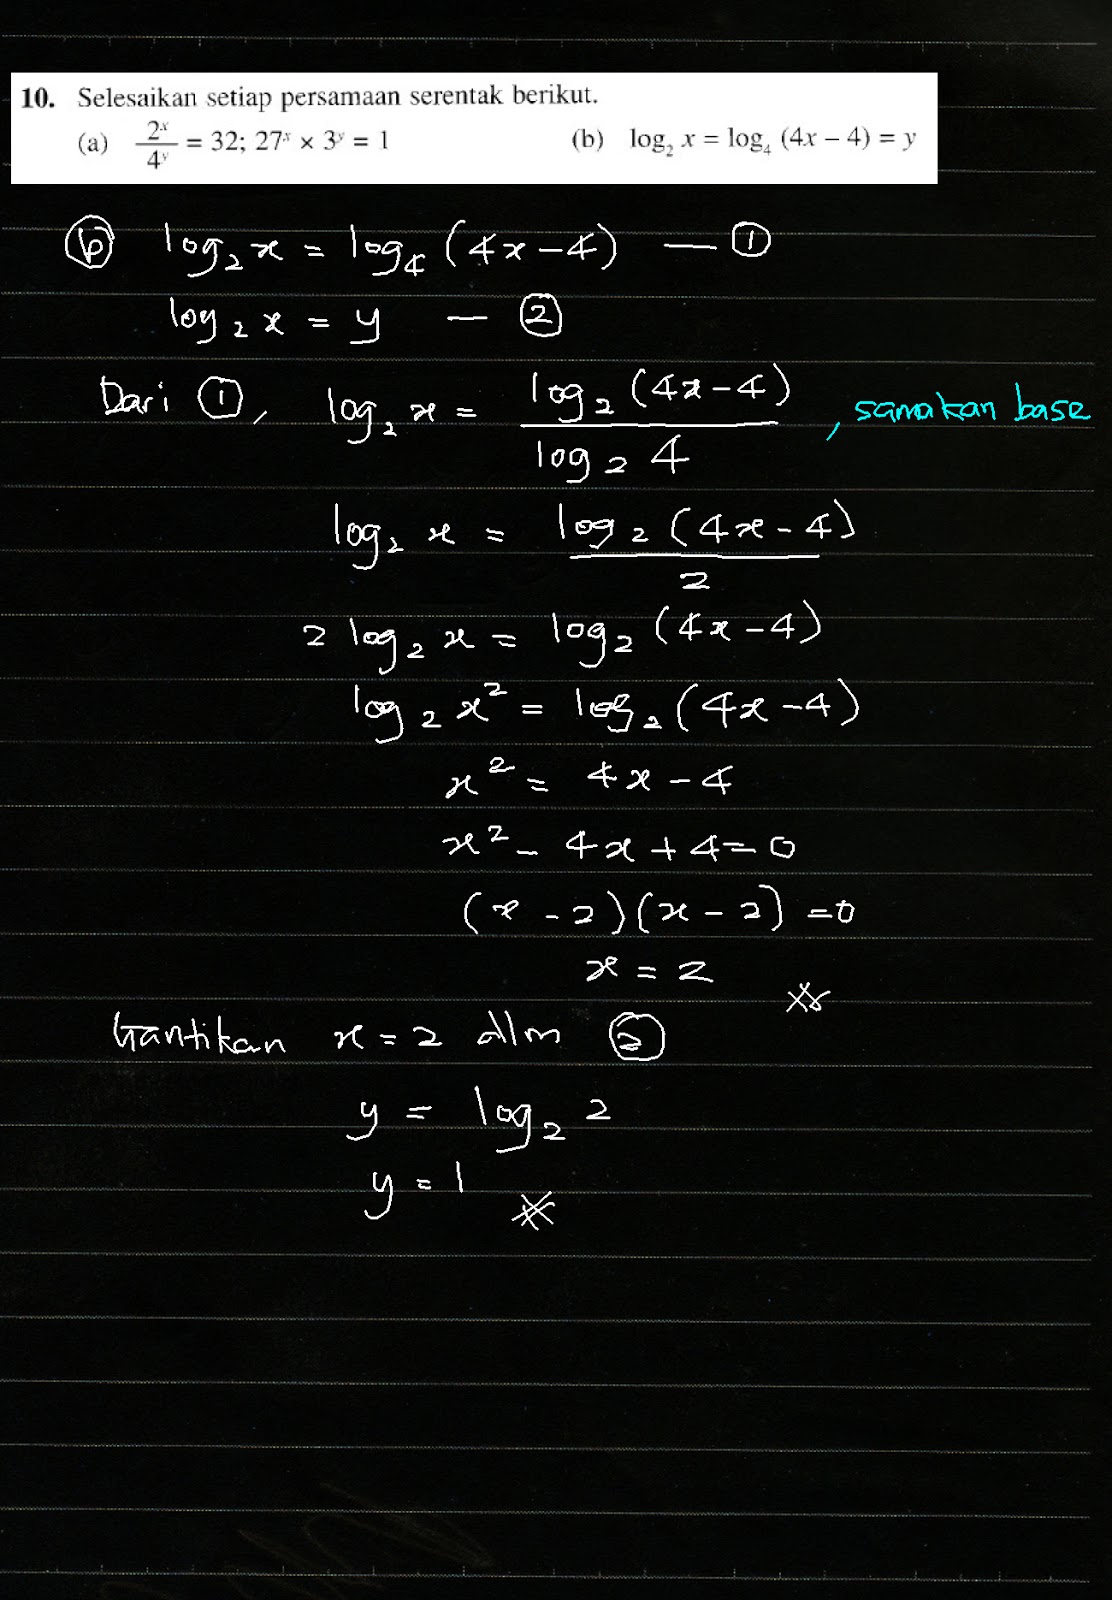 10. Selesaikan setiap persamaan serentak berikut.
(a) 2^x/4^y = 32; 27^x × 3^y = 1 (b) log₂ x = log₄ (4x – 4) = y
ⓑ log₂ x = log₄ (4x – 4) — ①
log₂ x = y — ②
Dari ①, log₂ x = log₂ (4x – 4) / log₂ 4 , samakan base
log₂ x = log₂ (4x – 4) / 2
2 log₂ x = log₂ (4x – 4)
log₂ x² = log₂ (4x – 4)
x² = 4x – 4
x² – 4x + 4 = 0
(x – 2)(x – 2) = 0
x = 2
Gantikan x = 2 dlm ②
y = log₂ 2
y = 1